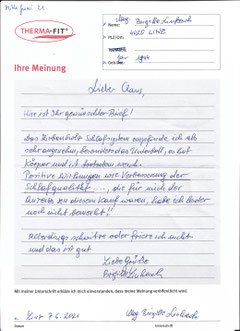 THERMA-FIT®
Mag. Brigitte Limbach
4020 LINZ
1944
Ihre Meinung
Liebe Claus,
Hier ist Ihr gewünschter Brief!
Das Zirbenholz Schlafsystem empfinde ich als
sehr angenehm, besonders das Unterteil, es hat
Körper und ist
Positive Wirkungen wie Verbesserung der
Schlafqualität ..., die für mich der
Anreiz zu diesem Kauf waren, habe ich leider
noch nicht bemerkt!
Allerdings schwitze oder friere ich nicht
und das ist gut
Liebe Grüße
Brigitte Limbach
Mit meiner Unterschrift erkläre ich mich einverstanden, dass meine Meinung veröffentlicht wird.
Linz 7.6.2021
Mag. Brigitte Limbach
Datum
Unterschrift